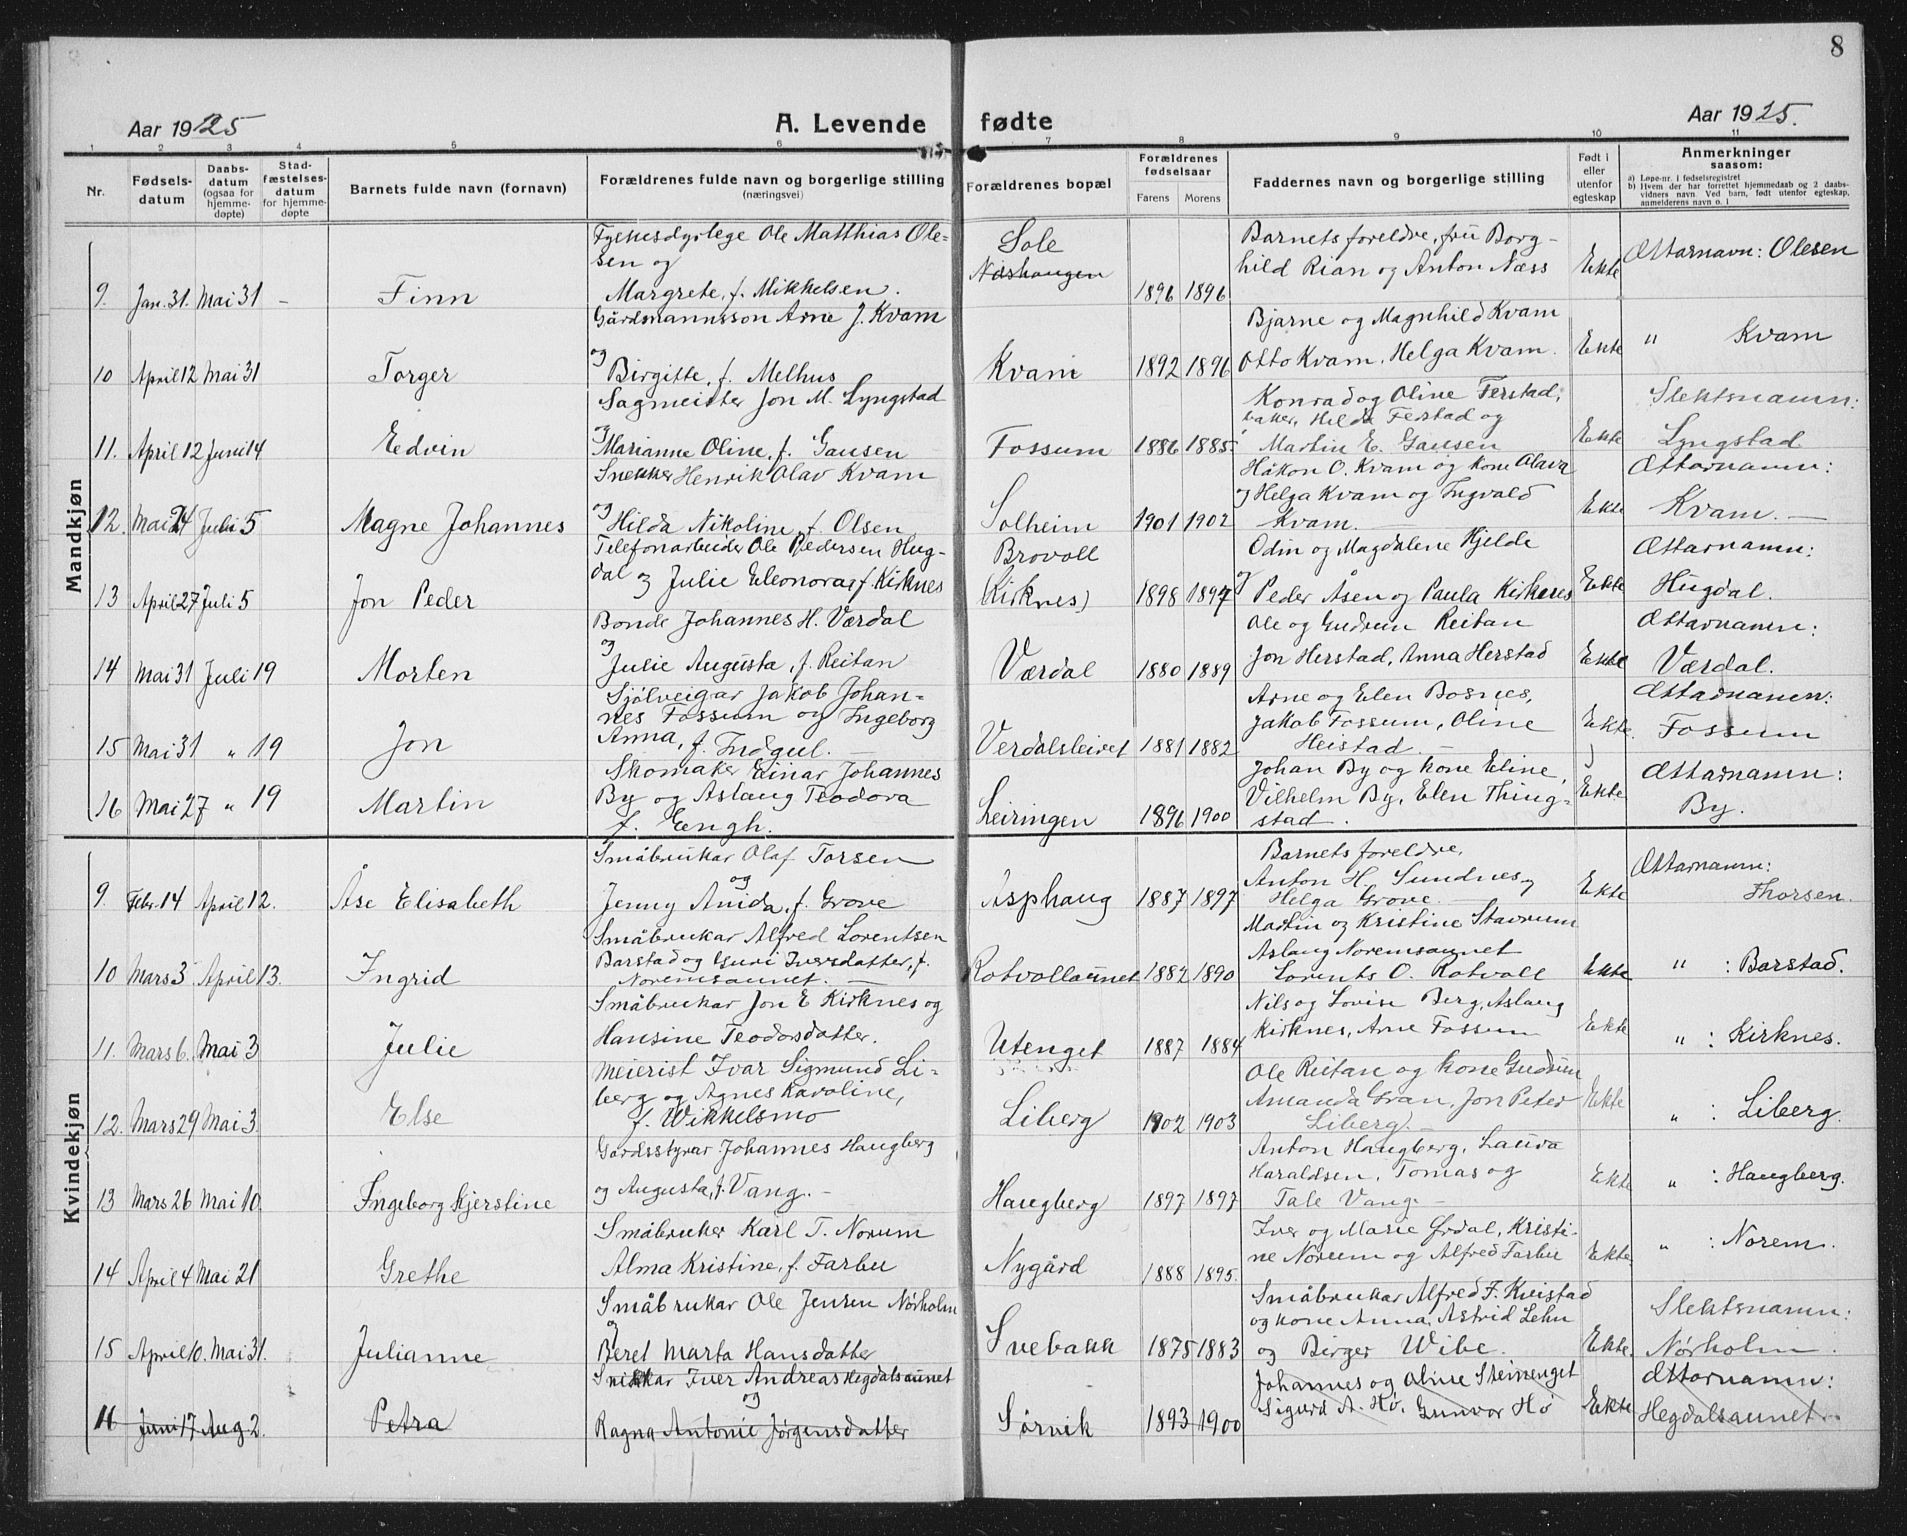 8
Aar 1925
A. Levende fødte
Aar 1925.
1 2 3 4 5 6 7 8 9 10 11
Nr.
Fødsels-
datum
Daabs-
datum
(ogsaa for
hjemme-
døpte)
Stad-
fæstelses-
datum
for hjemme-
døpte
Barnets fulde navn (fornavn)
Forældrenes fulde navn og borgerlige stilling
(næringsvei)
Forældrenes bopæl
Forældrenes
fødselsaar
Farens Morens
Faddernes navn og borgerlige stilling
Født i
eller
utenfor
egteskap
Anmerkninger
saasom:
a) Løpe-nr. i fødselsregistret
b) Hvem der har forrettet hjemmedaab og 2 daabs-
vidners navn. Ved barn, født utenfor egteskap,
anmelderens navn o. l
Mandkjøn
9. Jan. 31. Mai 31 – Finn
Fylkesdyrlege Ole Matthias Ole-
sen og
Margrete, f. Mikkelsen.
Sole
1896 1896
Barnets foreldre, fru Borg-
hild Rian og Anton Næss
Ekte
Ættarnavn: Olesen
10 April 12 Mai 31 Torger
Gårdmannsson Arne J. Kvam
og
Birgitte, f. Melhus
Kvam 1892 1896
Bjarne og Magnhild Kvam
Otto Kvam, Helga Kvam.
Ekte
" Kvam
11. April 12 Juni 14 Edvin
Sagmeister Jon M. Lyngstad
og
Marianne Oline, f. Gausen
Fossum 1886 1885.
Konrad og Oline Ferstad,
Hilda Ferstad og
Martin E. Gausen
Ekte
Slektsnamn:
Lyngstad
12. Mai 24 Juli 5 Magne Johannes
Snekker Henrik Olav Kvam
og
Hilda Nikoline, f. Olsen
Solheim 1901 1902
Håkon O. Kvam og kone Olava
og Helga Kvam og Ingvald
Kvam.
Ekte
Ættarnamn:
Kvam.
13 April 27 Juli 5 Jon Peder
Telefonarbeider Ole Pedersen Hug-
dal og Julie Eleonora, f. Kirknes
Brovoll
(Kirknes) 1898 1897
Odin og Magdalene Hjelde
og Peder Åsen og Paula Kirknes
Ekte
Ættarnamn:
Hugdal.
14 Mai 31 Juli 19 Morten
Bonde Johannes H. Værdal
og
Julie Augusta, f. Reitan
Værdal 1880 1889
Ole og Gudrun Reitan
Jon Herstad, Anna Herstad
Ekte
Ættarnamn:
Værdal.
15 Mai 31 " 19 Jon
Sjölveigar Jakob Johan-
nes Fossum og Ingeborg
Anna, f. Indgul.
Verdalsleiret 1881 1882
Arne og Elen Bosnes,
Jakob Fossum, Oline
Heistad.
Ekte.
Ættarnamn:
Fossum
16 Mai 27 " 19 Martin
Skomaker Einar Johannes
By og Aslaug Teodora
f. Engh.
Leiringen 1896 1900
Johan By og kone Eline,
Vilhelm By, Elen Thing-
stad.
Ekte
Ættarnamn:
By.
Kvindekjøn
9. Febr. 14 April 12. Åse Elisabeth
Småbrukar Olaf Torsen
og
Jenny Anida, f. Grove
Asphaug 1887 1897
Barnets foreldre,
Anton H. Sundnes,
Helga Grove.
Ekte
Ættarnamn:
Thorsen.
10 Mars 3 April 13. Ingrid
Småbrukar Alfred Lorentsen
Barstad og Guri Iversdatter, f.
Noremsaunet.
Rotvollaunet 1882 1890
Martin og Kristine Stavrum
Aslaug Noremsaunet
Lorents O. Rotvoll
Ekte
" : Barstad.
11. Mars 6. Mai 3 Julie
Småbrukar Jon E Kirknes og
Hansine Teodorsdatter.
Utenget 1887 1884
Nils og Lovise Berg, Aslaug
Kirknes, Arne Fossum
Ekte
" : Kirknes.
12. Mars 29 Mai 3. Else
Meierist Ivar Sigmund Li-
berg og Agnes Karoline,
f. Wikkelsmo
Liberg 1902 1903
Ole Reitan og kone Gudrun
Amanda Gran, Jon Peter
Liberg.
Ekte
" : Liberg.
13 Mars 26 Mai 10. Ingeborg Kjerstine
Gardsstyrar Johannes Haugberg
og Augusta, f. Vang.
Haugberg 1897 1897
Anton Haugberg, Laura
Haraldsen, Tomas og
Tale Vang.
Ekte
" : Haugberg.
14 April 4 Mai 21 Grethe
Småbruker Karl T. Norum
Alma Kristine, f. Farbu
Nygård 1888 1895.
Iver og Marie Ørdal, Kristi-
ne Norum og Alfred Farbu
Ekte
" : Norem.
15 April 10. Mai 31. Julianne
Småbrukar Ole Jensen Nørholm
og
Beret Marta Hansdatter
Svebakk 1875 1883
Småbrukar Alfred F. Kveistad
og kone Anna, Astrid Lehn
og Birger Wibe.
Ekte.
Slektsnamn:
Nørholm.
16 Juni 17 Aug 2. Petra
Snikkar Iver Andreas Hegdalsaunet
og
Ragna Antonie Jørgensdatter
Sørvik 1893 1900
Johannes og Oline Steinenget
Sigurd A. Hø, Gunvor Hø
Ekte
Ættarnamn:
Hegdalsaunet